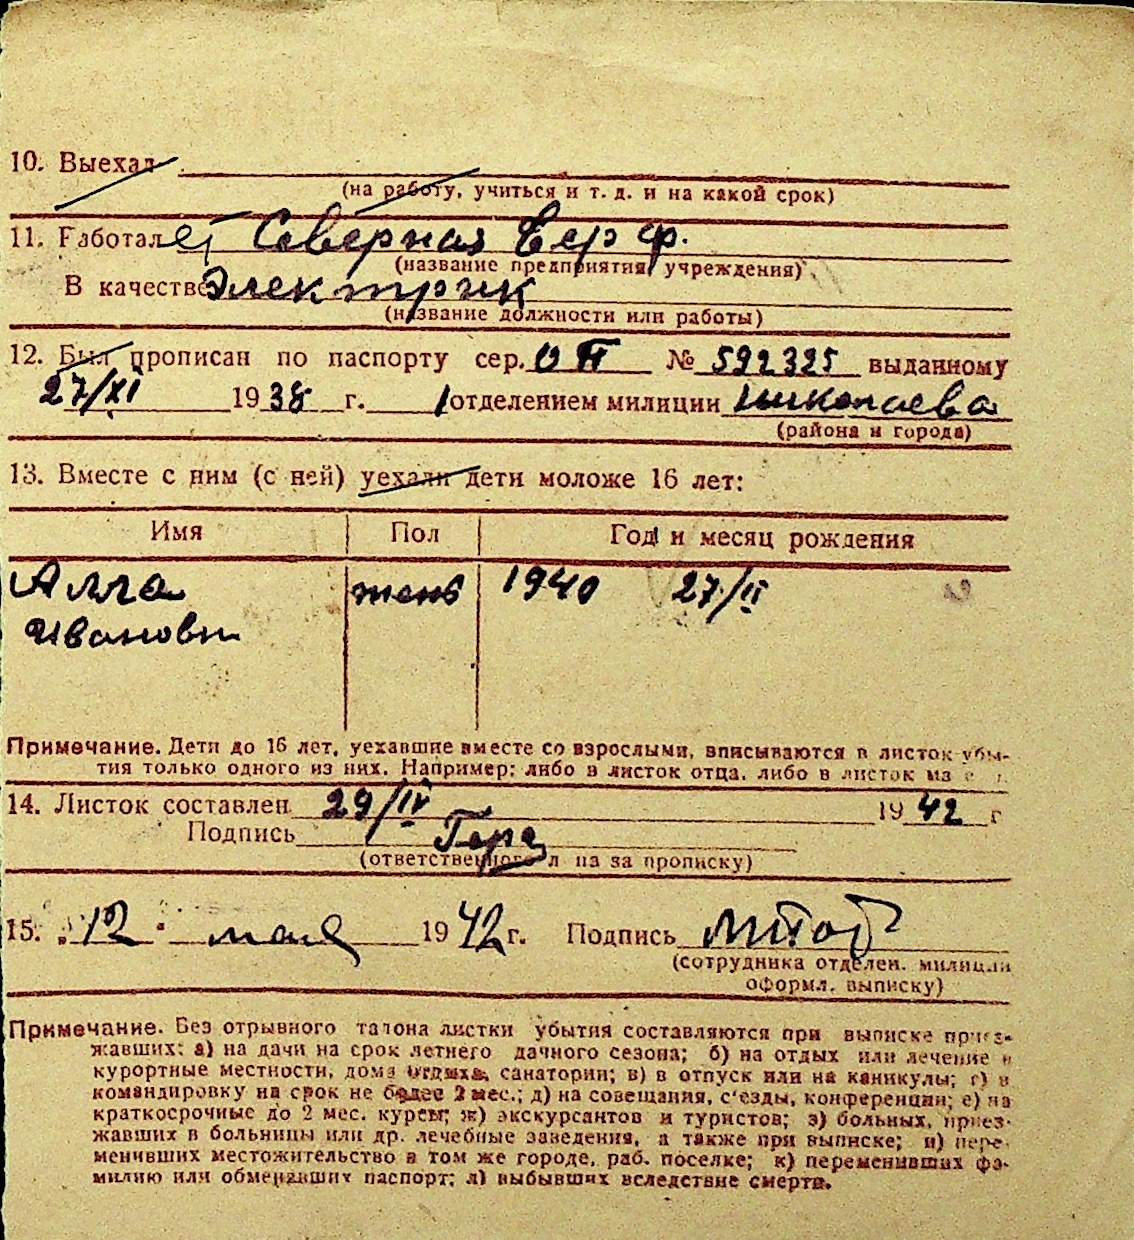 10. Выехал
(на работу, учиться и т. д. и на какой срок)
11. Работал ет Северная Верф.
(название предприятия, учреждения)
В качестве Электрик
(название должности или работы)
12. Был прописан по паспорту сер. ОП № 592325 выданному
27/XI 1938 г. 1 отделением милиции Николаева
(района и города)
13. Вместе с ним (с ней) уехали дети моложе 16 лет:
Имя Пол Год и месяц рождения
Алла жень 1940 27/II
Ивановн
Примечание. Дети до 16 лет, уехавшие вместе со взрослыми, вписываются в листок убы-
тия только одного из них. Например: либо в листок отца, либо в листок
14. Листок составлен 29/IV 1942 г
Подпись
(ответственного л на за прописку)
15. „12" мая 1942 г. Подпись
(сотрудника отделен. милиции
оформл. выписку)
Примечание. Без отрывного талона листки убытия составляются при выписке приез-
жавших: а) на дачи на срок летнего дачного сезона; б) на отдых или лечение в
курортные местности, дома отдыха, санатории; в) в отпуск или на каникулы; г) в
командировку на срок не более 2 мес.; д) на совещания, с'езды, конференции; е) на
краткосрочные до 2 мес. курсы; ж) экскурсантов и туристов; з) больных, приез-
жавших в больницы или др. лечебные заведения, а также при выписке; и) пере-
менивших местожительство в том же городе, раб. поселке; к) переменивших фа-
милию или обменявших паспорт; л) выбывших вследствие смерти.